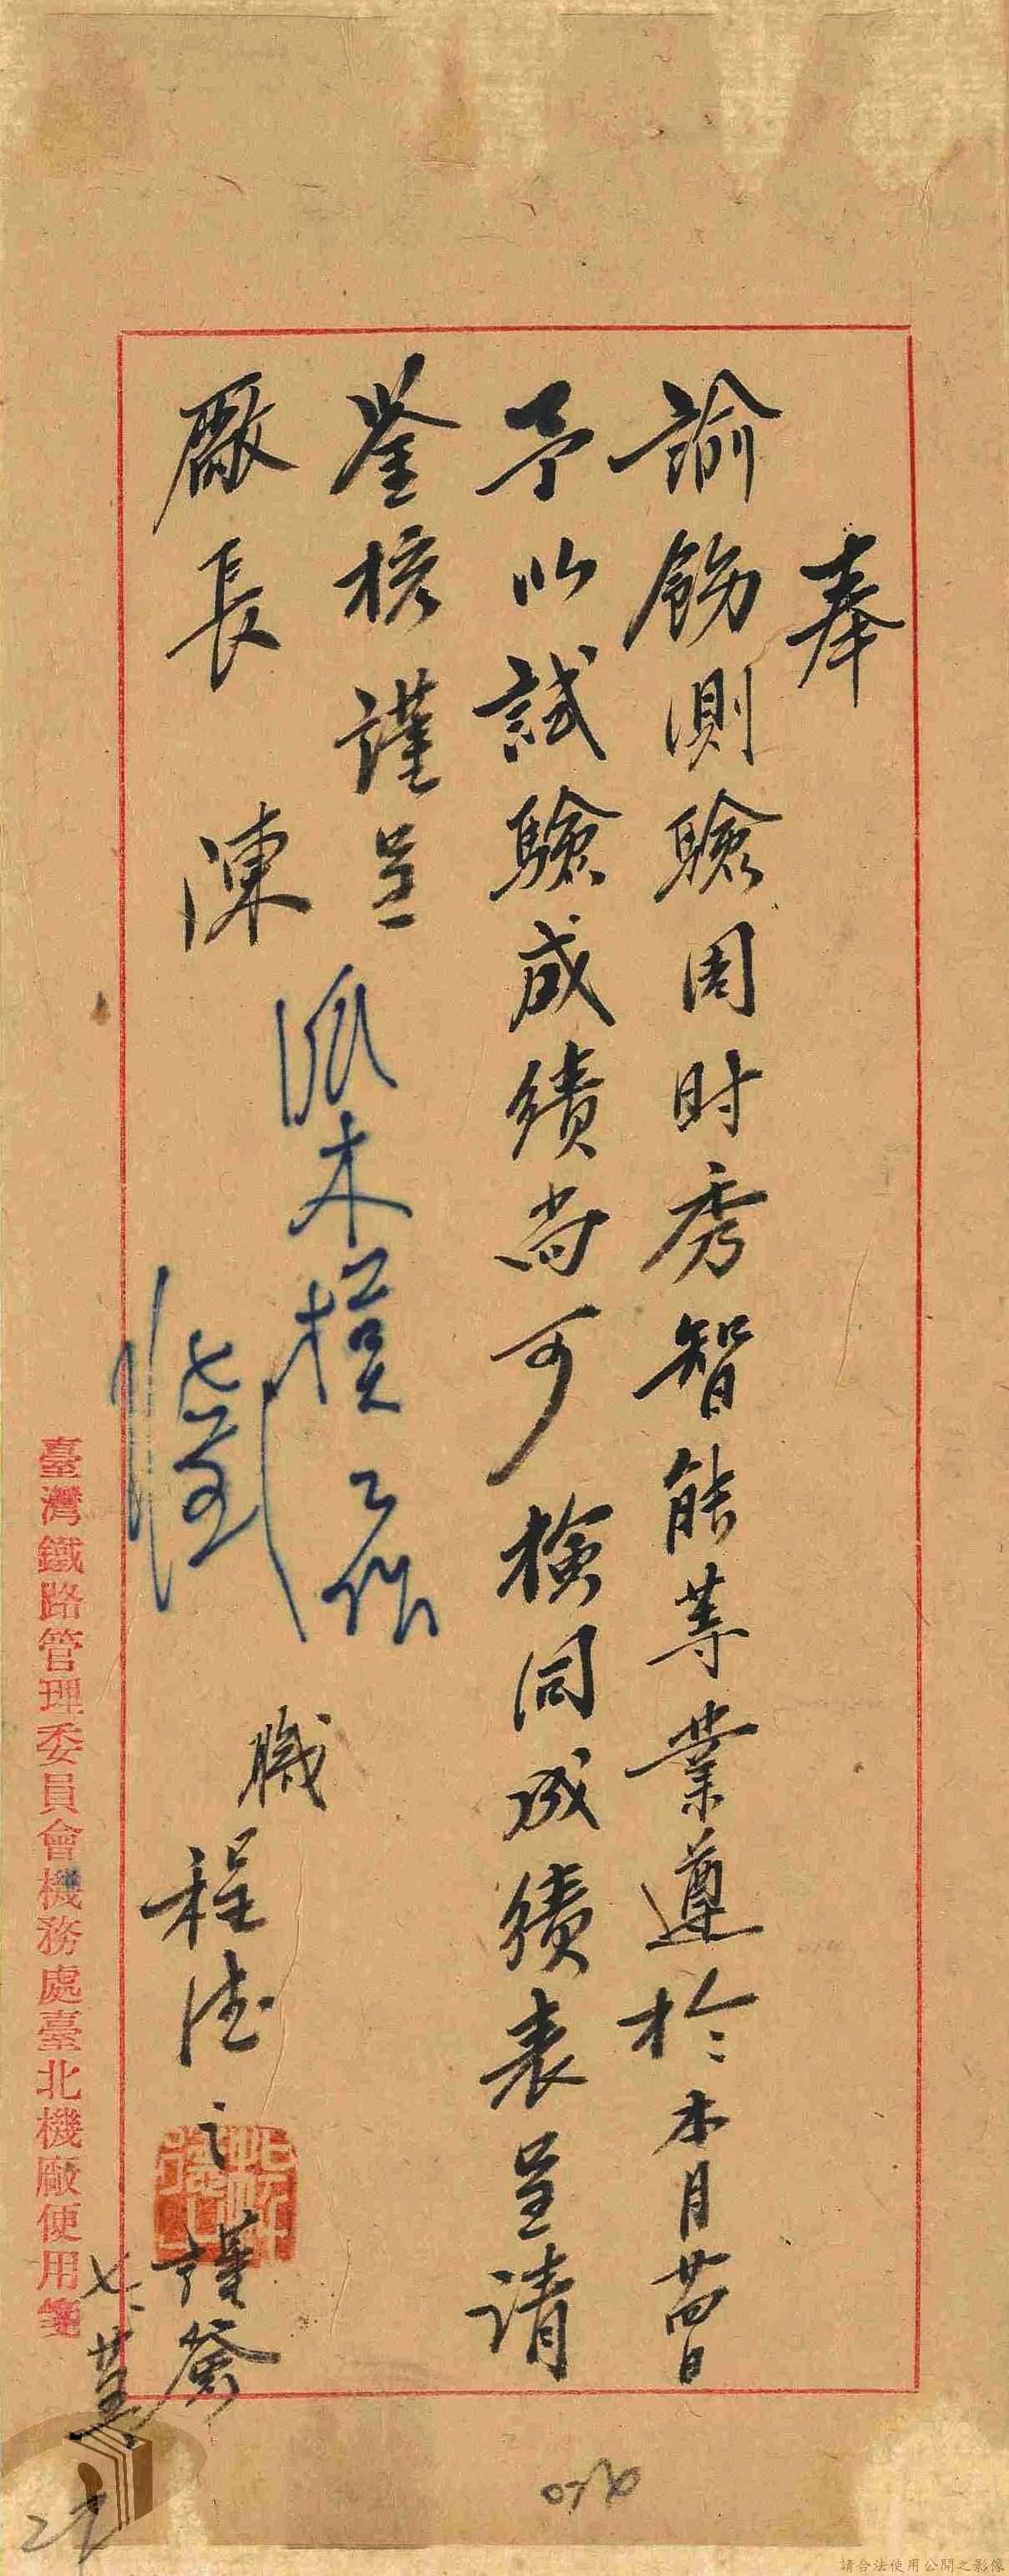 奉
諭飭測驗周時秀智能等業遵於本月廿四日
予以試驗成績尚可檢同成績表呈請
鉴核謹呈
廠長 陳
派木模工作
職 程德之謹簽
七、
臺灣鐵路管理委員會機務處臺北機廠使用箋
請合法使用公開之影像